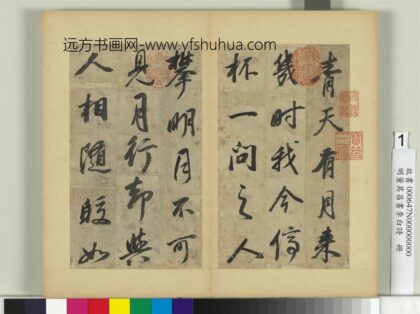 远方书画网-www.yfshuhua.com
青天有月来
幾时我今停
杯一问之人
攀明月不可
見月行却與
人相随皎如
1
故書000647N000000000
明董其昌書李白詩 冊